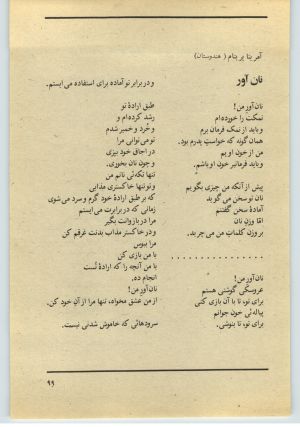 آمریتا پریتام (هندوستان)
نان آور
نان‌آور من!
نمکت را خورده‌ام
و باید از نمک فرمان برم
همان گونه که خواستِ پدرم بود.
من از خون اویم
و باید فرمانبر خون او باشم.
پیش از آنکه من چیزی بگویم
نان تو سخن می‌گوید
آماده سخن گفتنم
امّا وزنِ نان
بر وزن کلماتِ من می‌چربد.
. . . . . . . . . . . . . . .
نان‌آور من!
عروسکی گوشتی هستم
برای تو، تا با آن بازی کنی
پیاله‌ئی خون جوانم
برای تو، تا بنوشی.
و در برابر تو آماده برای استفاده می‌ایستم.
طبق ارادهٔ تو
رشد کرده‌ام و
و خُرد و خمیر شدم
تو می‌توانی مرا
در اجاق خود بپزی
و چون نان بخوری.
تنها تکه‌ئی نانم من
و تو تنها خاکستری مذابی
که بر طبق ارادهٔ خود گرم و سرد می‌شوی
زمانی که در برابرت می‌ایستم
مرا در بازوانت بگیر
و در خاکستر مذاب بدنت غرقم کن
مرا ببوس
با من بازی کن
با من آنچه را که ارادهٔ تُست
انجام ده.
نان‌آور من!
از من عشق مخواه، تنها مرا از آنِ خود کن.
سرودهائی که خاموش شدنی نیست.
۹۹